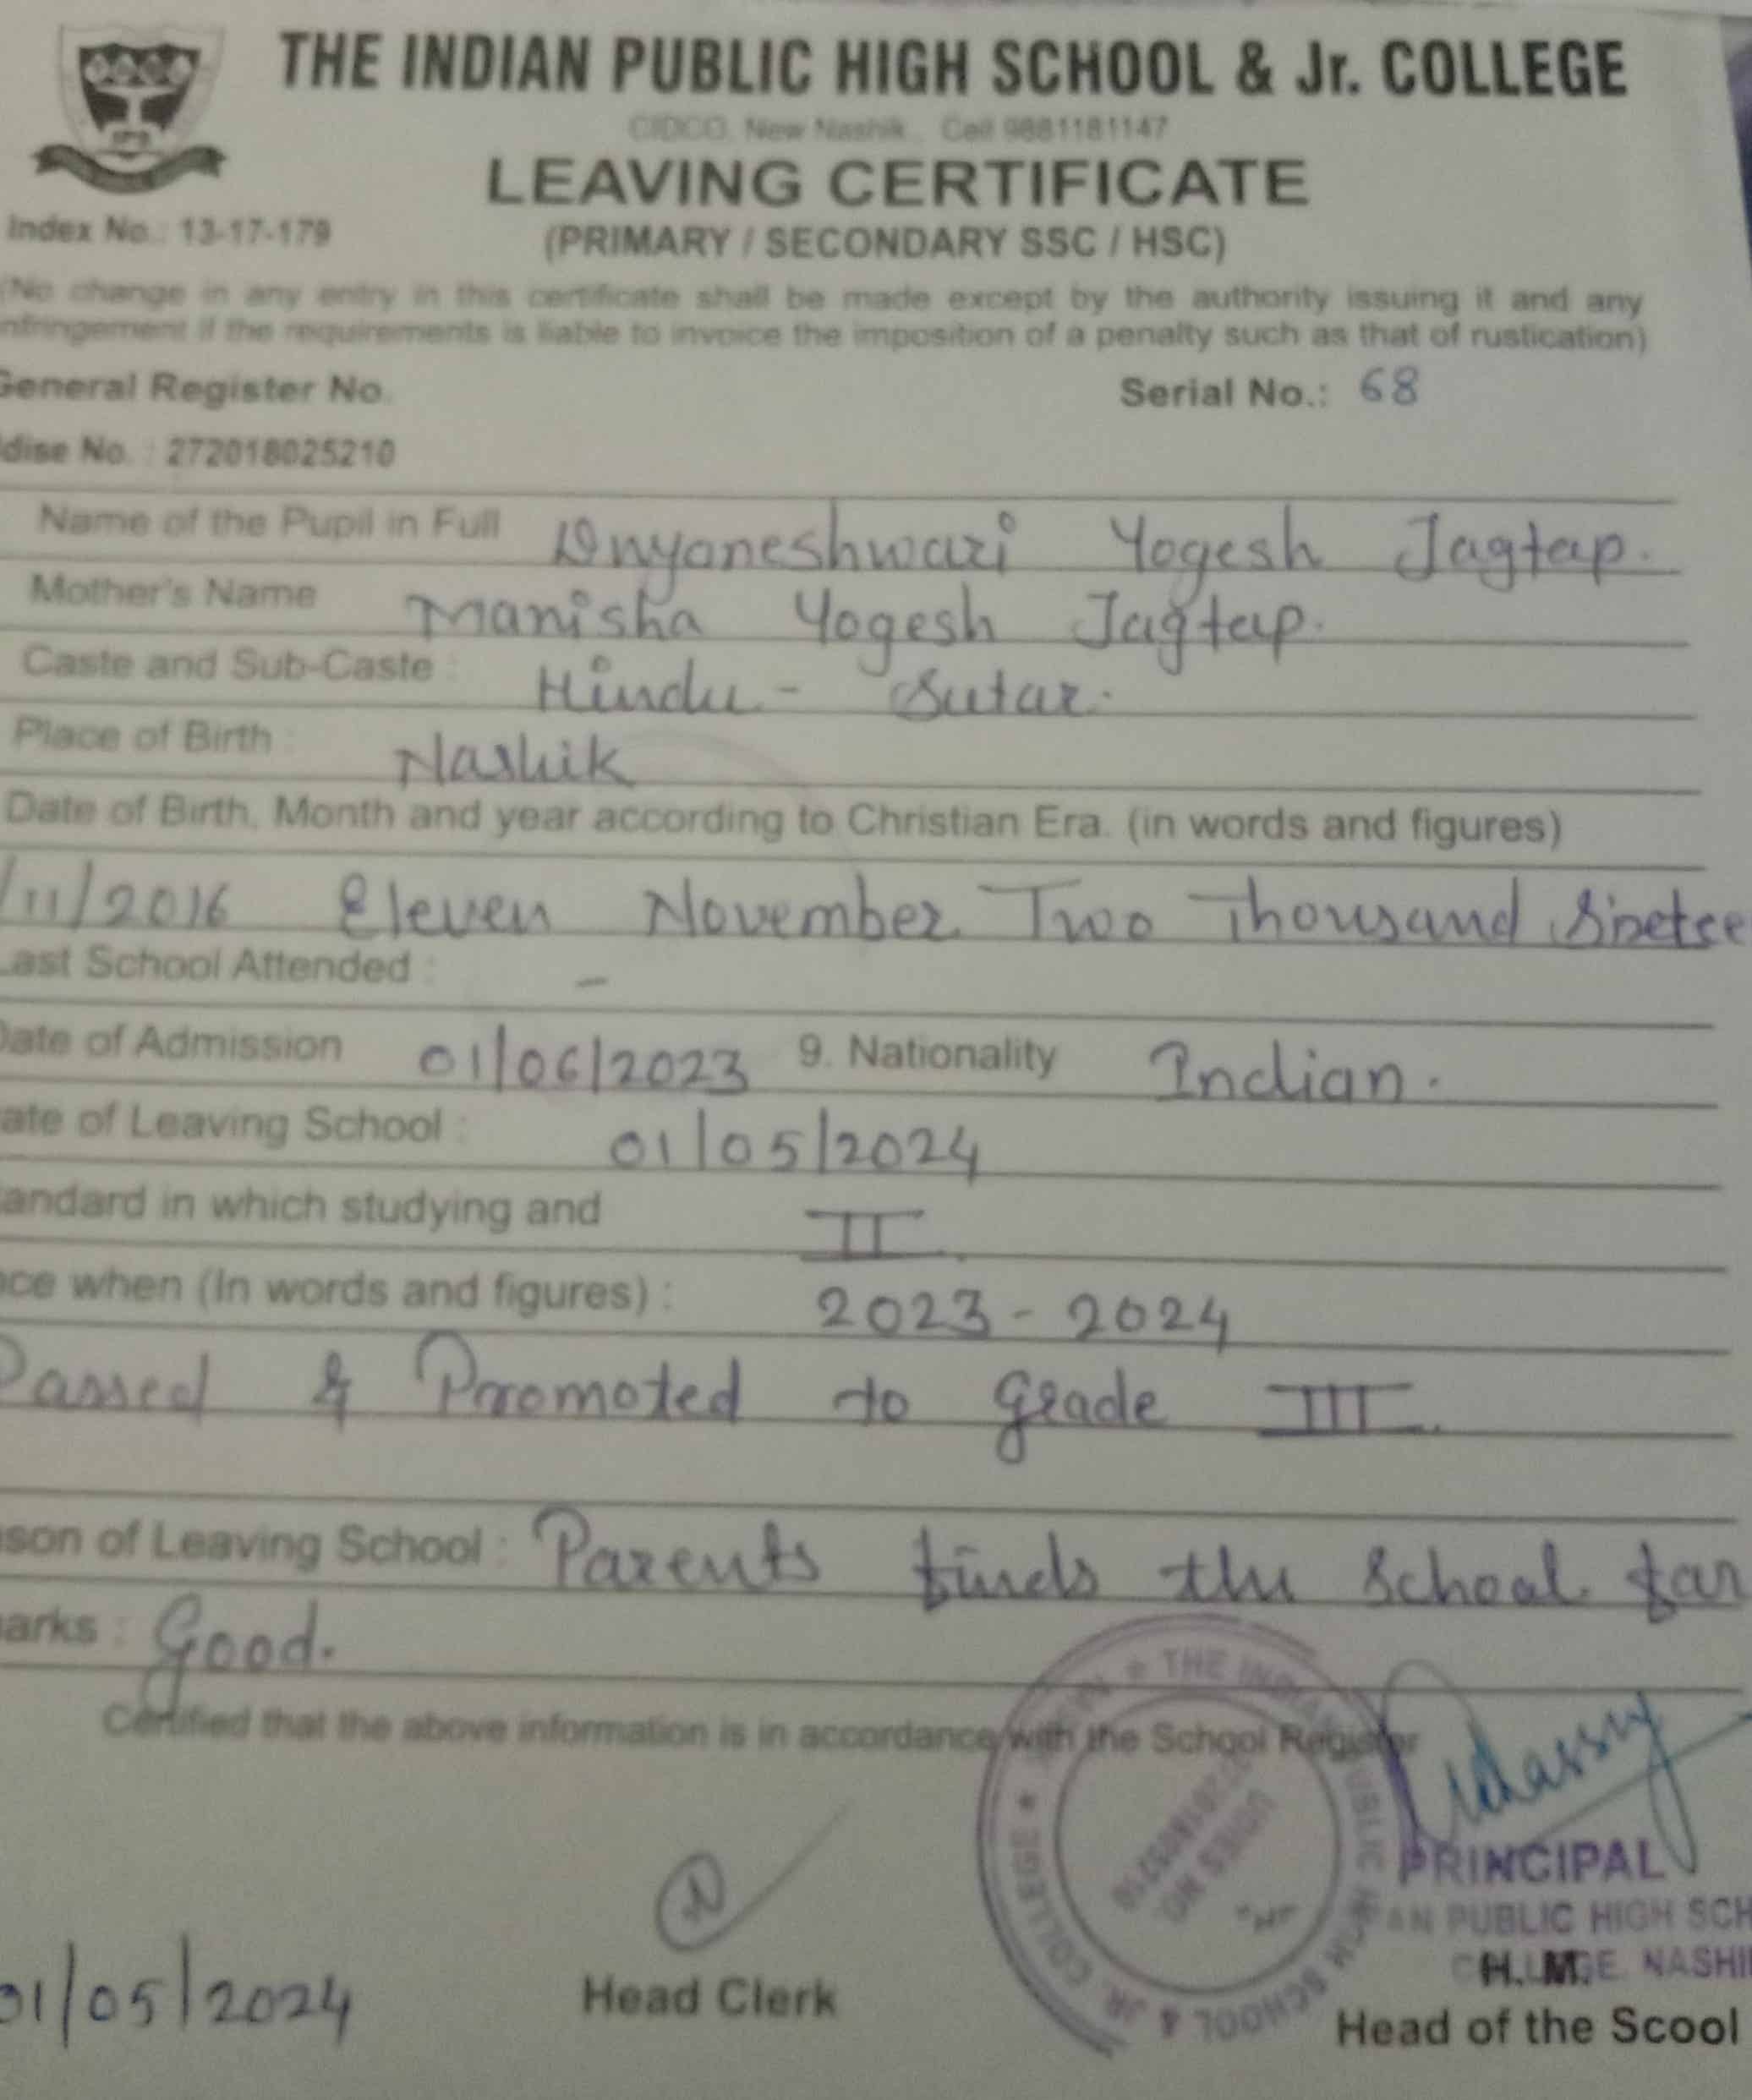 THE INDIAN PUBLIC HIGH SCHOOL & Jr. COLLEGE
CIDCO, New Nashik. Cell 9881181147
LEAVING CERTIFICATE
Index No.: 13-17-179
(PRIMARY / SECONDARY SSC / HSC)
(No change in any entry in this certificate shall be made except by the authority issuing it and any
nfringement if the requirements is liable to invoice the imposition of a penalty such as that of rustication)
General Register No.
Serial No.: 68
dise No. : 272018025210
Name of the Pupil in Full Dnyaneshwari Yogesh Jagtap.
Mother's Name Manisha Yogesh Jagtap.
Caste and Sub-Caste : Hindu - Sutar.
Place of Birth : Nashik
Date of Birth, Month and year according to Christian Era. (in words and figures)
/11/2016 Eleven November Two Thousand Sixtee
Last School Attended : -
Date of Admission 01/06/2023 9. Nationality Indian.
ate of Leaving School : 01/05/2024
andard in which studying and II
nce when (In words and figures) : 2023 - 2024
Passed & Promoted to grade III.
son of Leaving School : Parents finds the School far
arks : Good.
Certified that the above information is in accordance with the School Register
PRINCIPAL
AN PUBLIC HIGH SCH
H.M.
NASHI
01/05/2024
Head Clerk
Head of the Scool
THE INDIAN PUBLIC HIGH SCHOOL & JR. COLLEGE
UDISE NO.